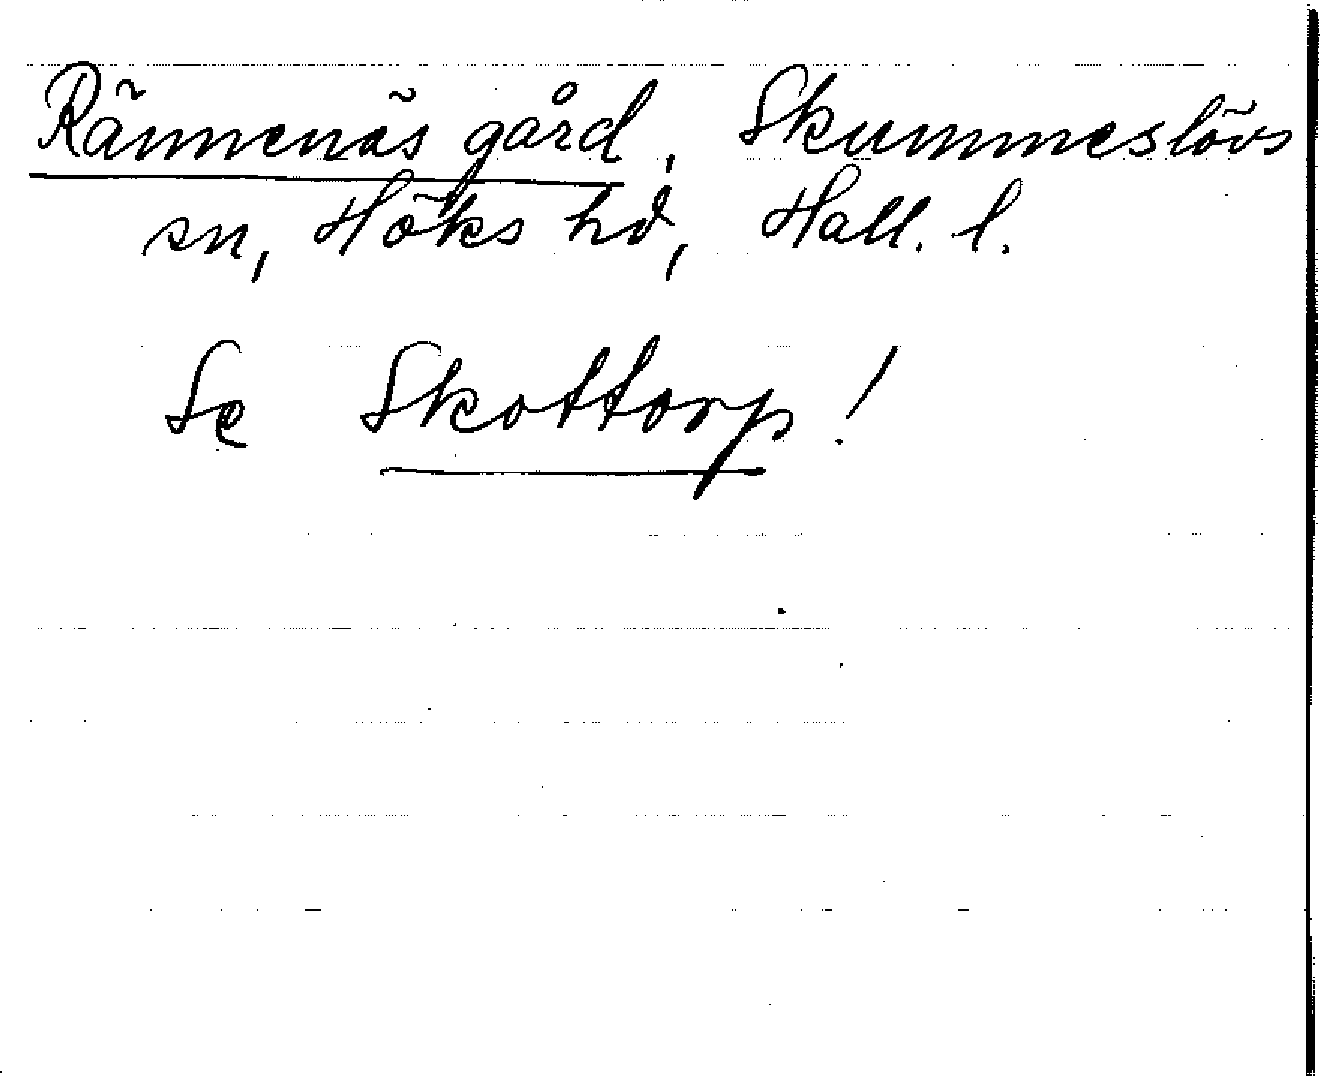 Rännenäs gård, Skummeslövs
sn, Höks hd, Hall. l.
Se Skottorp!